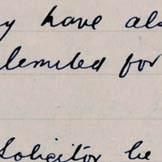 y have als
lemited for
Solicitor be